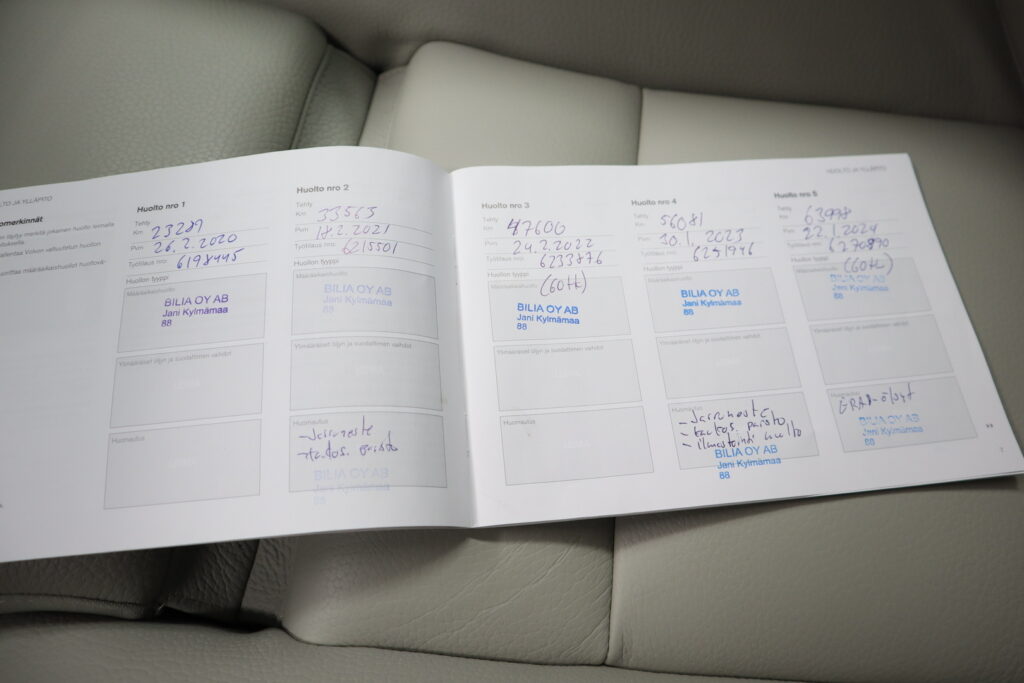 HUOLTO JA YLLÄPITO
Huolto nro 1
Tehty
Km 23289
Pvm 26.2.2020
Työtilaus nro: 6198445
Huollon tyyppi
Määräaikaishuolto
BILIA OY AB
Jani Kylmämaa
88
Ylimääräiset öljyn ja suodattimen vaihdot
Huomautus
Huolto nro 2
Tehty
Km 33565
Pvm 18.2.2021
Työtilaus nro: 6215501
Huollon tyyppi
Määräaikaishuolto
BILIA OY AB
Jani Kylmämaa
88
Ylimääräiset öljyn ja suodattimen vaihdot
Huomautus
- Jarruneste
BILIA OY AB
Jani Kylmämaa
88
HUOLTO JA YLLÄPITO
Huolto nro 3
Tehty
Km 47600
Pvm 24.2.2022
Työtilaus nro: 6233876
Huollon tyyppi
Määräaikaishuolto
(60tk)
BILIA OY AB
Jani Kylmämaa
88
Ylimääräiset öljyn ja suodattimen vaihdot
Huomautus
Huolto nro 4
Tehty
Km 56081
Pvm 30.1.2023
Työtilaus nro: 6251946
Huollon tyyppi
Määräaikaishuolto
BILIA OY AB
Jani Kylmämaa
88
Ylimääräiset öljyn ja suodattimen vaihdot
Huomautus
- Jarruneste
- kaukos. paristo
- ilmastointi huolto
BILIA OY AB
Jani Kylmämaa
88
Huolto nro 5
Tehty
Km 63998
Pvm 22.1.2024
Työtilaus nro: 6270890
Huollon tyyppi
Määräaikaishuolto
(60tk)
BILIA OY AB
Jani Kylmämaa
88
Ylimääräiset öljyn ja suodattimen vaihdot
Huomautus
BILIA OY AB
Jani Kylmämaa
88
7